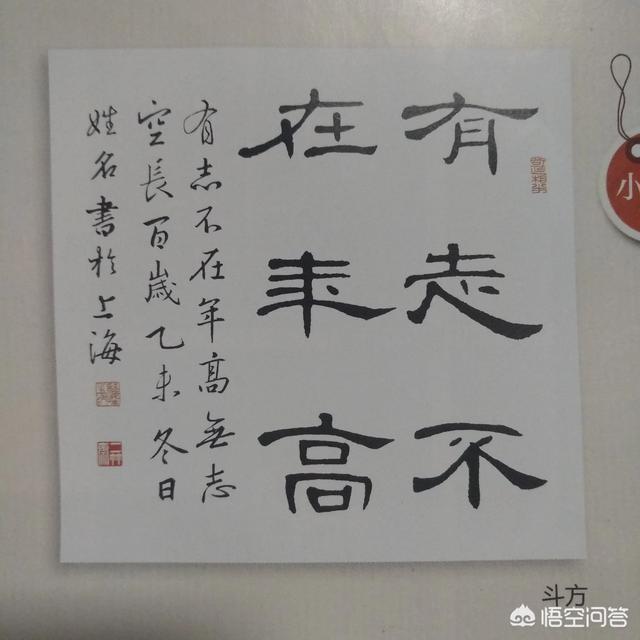 有志不
在年高
有志不在年高無志
空長百歲乙未冬日
姓名書於上海
小
斗方
悟空问答